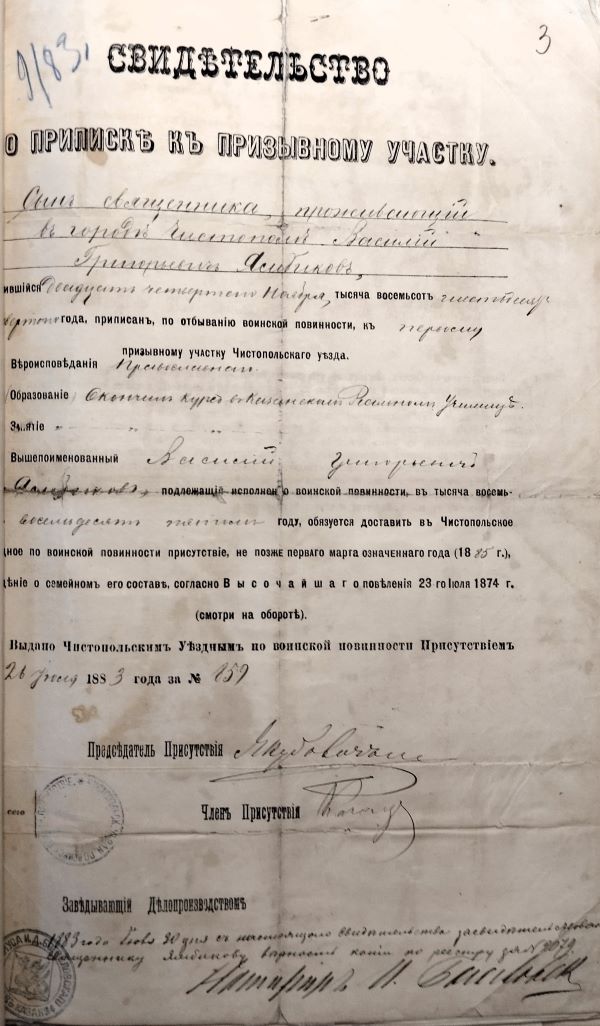 9/83,
3
СВИДѢТЕЛЬСТВО
О ПРИПИСКѢ КЪ ПРИЗЫВНОМУ УЧАСТКУ.
Сынъ священника, проживающій
въ городѣ Чистополѣ Василій
Григорьевичъ
ившійся Двадцать четвертаго Ноября, тысяча восемьсотъ шестьдеся
года, приписан, по отбыванію воинской повинности, къ первому
призывному участку Чистопольскаго уѣзда.
Вѣроисповѣданія Православнаго
(Образованіе) Окончилъ курсъ въ Казанскомъ Реальномъ Училищѣ.
Зъятіе " "
Вышепоименованный Василій Григорьевичъ
подлежащій исполненію воинской повинности, въ тысяча восемь-
восемьдесятъ пятомъ году, обязуется доставить въ Чистопольское
дное по воинской повинности присутствіе, не позже перваго марта означеннаго года (1885 г.),
дѣніе о семейномъ его составѣ, согласно Высочайшаго повелѣнія 23 го Іюля 1874 г.
(смотри на оборотѣ).
Выдано Чистопольскимъ Уѣзднымъ по воинской повинности Присутствіемъ
1883 года за № 159
Предсѣдатель Присутствія
сего
Членъ Присутствія
Завѣдывающій Дѣлопроизводствомъ
1883 года 30 дня съ настоящаго свидѣтельства засвидѣтельствована
священнику вѣрность копіи по реестру за №
Нотаріусъ